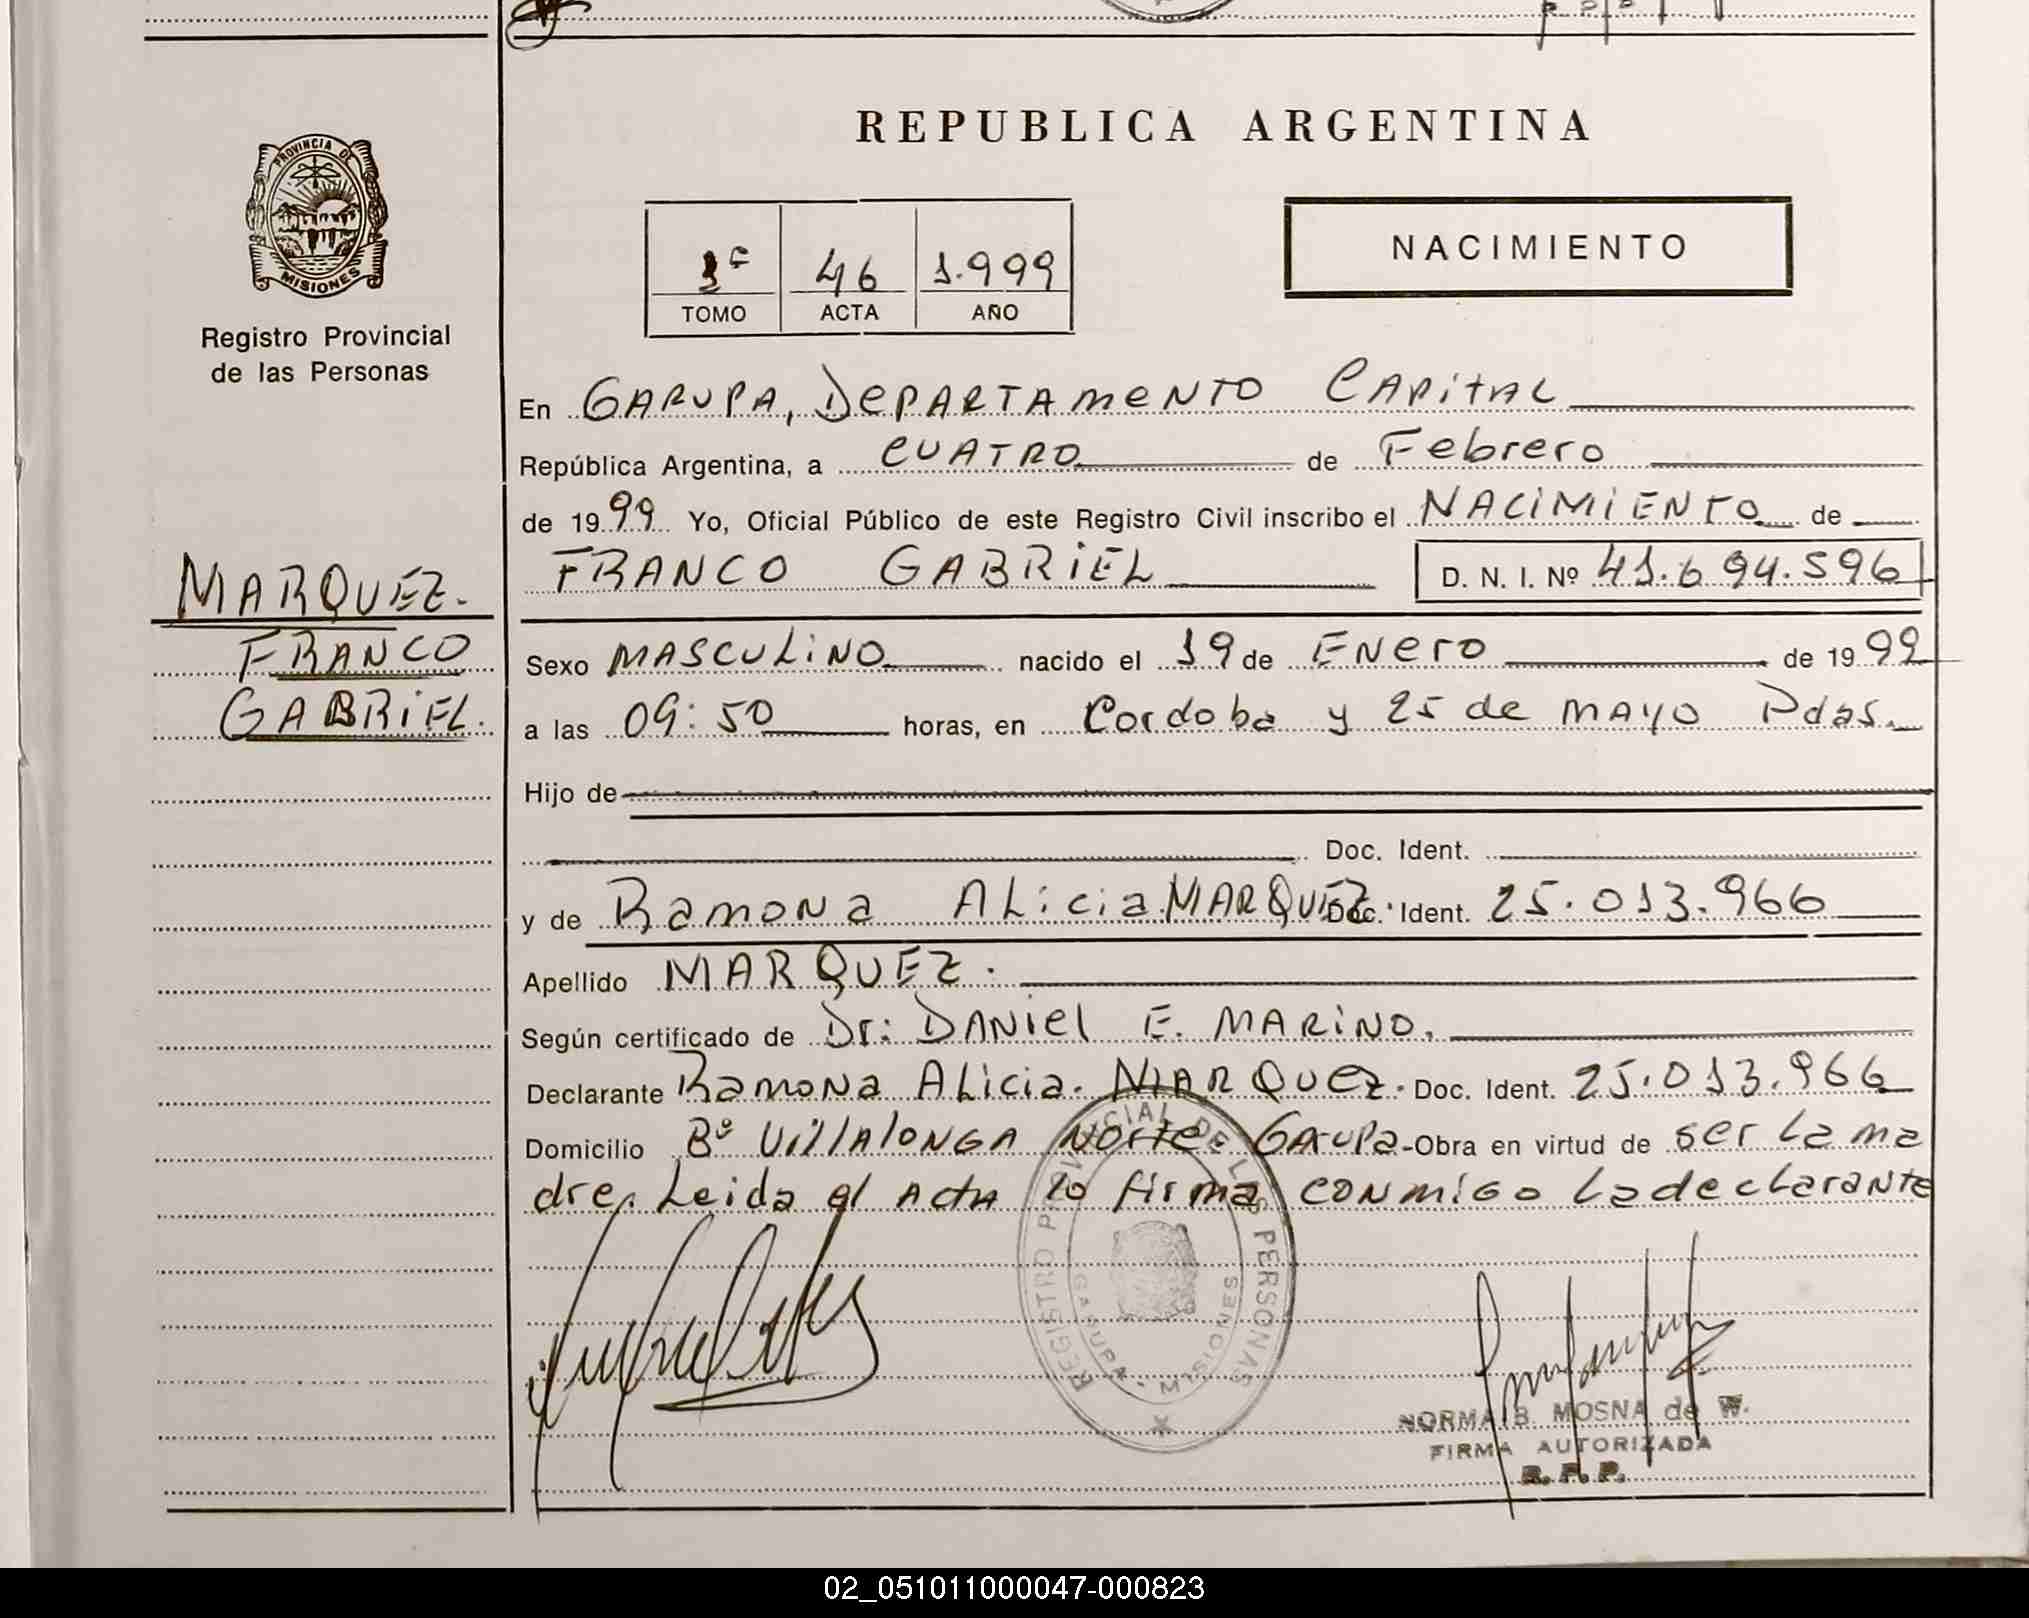 REPUBLICA ARGENTINA
PROVINCIA DE
MISIONES
Registro Provincial
de las Personas
1º 46 1.999
TOMO ACTA AÑO
NACIMIENTO
En GARUPA, DEPARTAMENTO CAPITAL
República Argentina, a CUATRO de Febrero
de 1999 Yo, Oficial Público de este Registro Civil inscribo el NACIMIENTO de
FRANCO GABRIEL D. N. I. Nº 41.694.596
MARQUEZ.
FRANCO
GABRIEL.
Sexo MASCULINO nacido el 19 de ENERO de 1999
a las 09:50 horas, en Cordoba y 25 de MAYO Pdas.
Hijo de
Doc. Ident.
y de Ramona ALicia MARQUEZ. Doc. Ident. 25.013.966
Apellido MARQUEZ.
Según certificado de Dr: DANIEL E. MARINO.
Declarante Ramona ALicia. MARQUEZ. Doc. Ident. 25.013.966
Domicilio Bº VillALONGA NORTE GARUPA-Obra en virtud de ser La ma
dre. Leida el ActA lo firma CONMIGO La decLarante
REGISTRO PROVINCIAL DE LAS PERSONAS
GARUPA - MISIONES
NORMA B. MOSNA de W.
FIRMA AUTORIZADA
R.P.P.
02_051011000047-000823